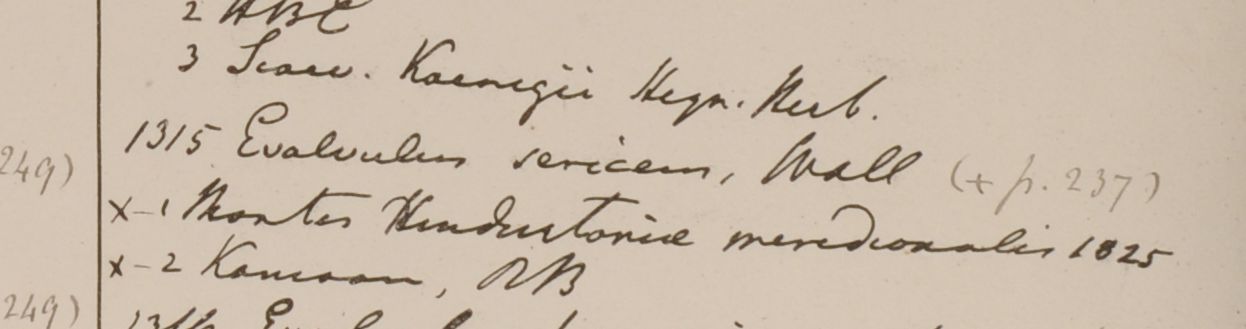 2 HBC
3 Scaev. Koenigii Heyn. Herb.
1315 Evolvulus sericeus, Wall (+ p. 237)
249)
x-1 Montes Hindustoniæ meredionalis 1825
x-2 Kamaon, RB
249)